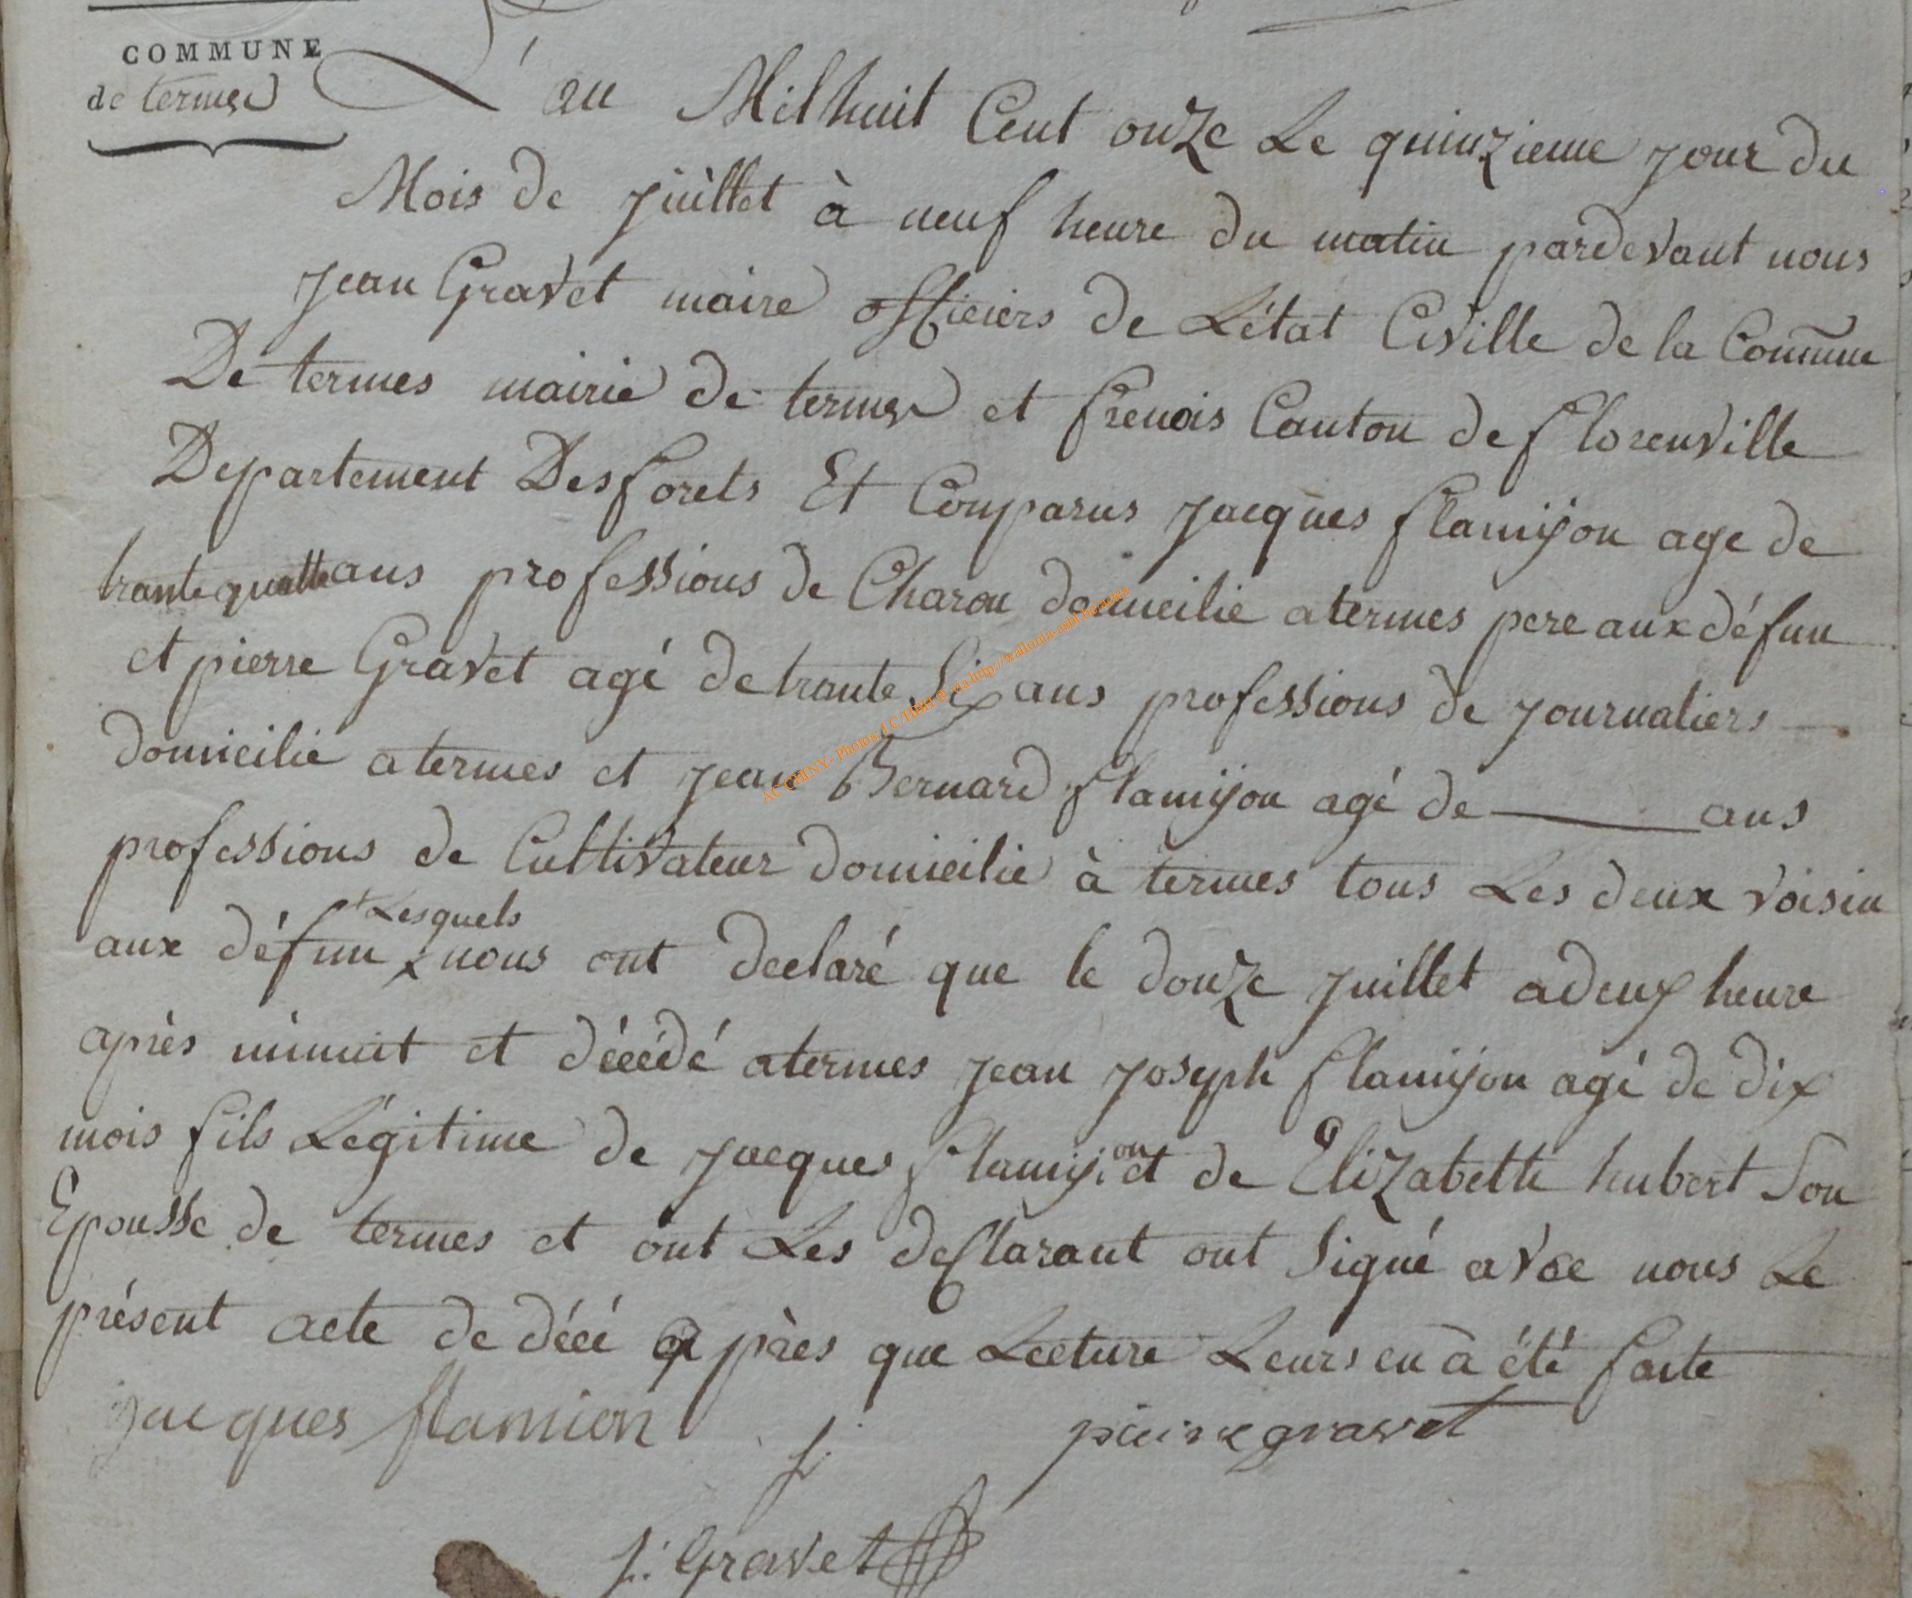 COMMUNE
de termes
L'an Mil huit Cent onze Le quinzieme jour du
Mois de juillet à neuf heure du matin pardevant nous
jean Gravet maire officiers de L'état Civille de la Commune
De termes mairie de termes et frenois Canton de florenville
Departement Des forets Et Comparus jacques flamijon age de
trante quatte ans professions de Charon domicilie a termes pere aux défun
et pierre Gravet agé de trante Six ans professions de journaliers
domicilie a termes et jean Bernard flamijon agé de ——— ans
professions de Cultivateur domicilie à termes tous Les deux voisin
+ Lesquels
aux défun x nous ont declaré que le douze juillet a deux heure
après minuit et décédé a termes jean joseph flamijon agé de dix
mois fils Légitime de jacques flamijon et de Elizabette hubert Son
Epousse de termes et ont Les deflarant ont Signé avec nous Le
présent acte de décé après que Lecture Leurs en à été faite
jacques flamion
pierre gravet
j: Gravet